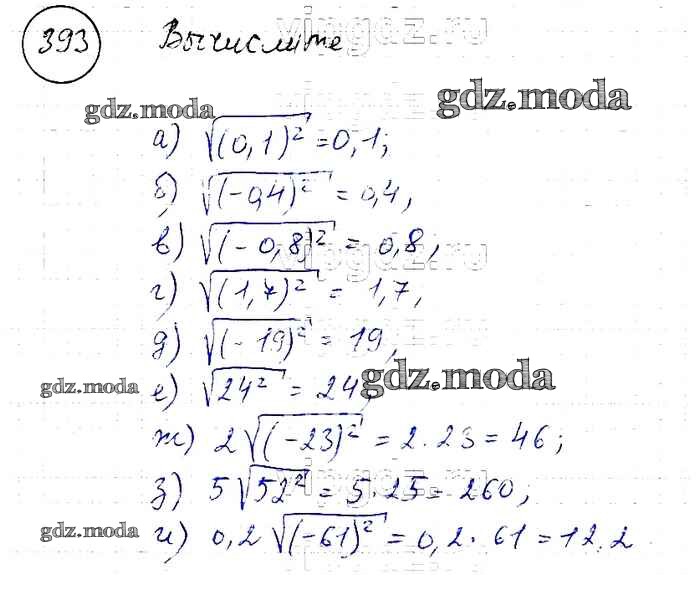 393 Вычислите
vipgdz.ru
gdz.moda gdz.moda
а) √(0,1)² = 0,1;
б) √(-0,4)² = 0,4,
в) √(-0,8)² = 0,8,
vipgdz.ru
г) √(1,7)² = 1,7,
д) √(-19)² = 19,
gdz.moda е) √24² = 24 gdz.moda
ж) 2√(-23)² = 2·23 = 46;
vipgdz.ru
з) 5√52² = 5·25 = 260,
gdz.moda и) 0,2√(-61)² = 0,2·61 = 12,2